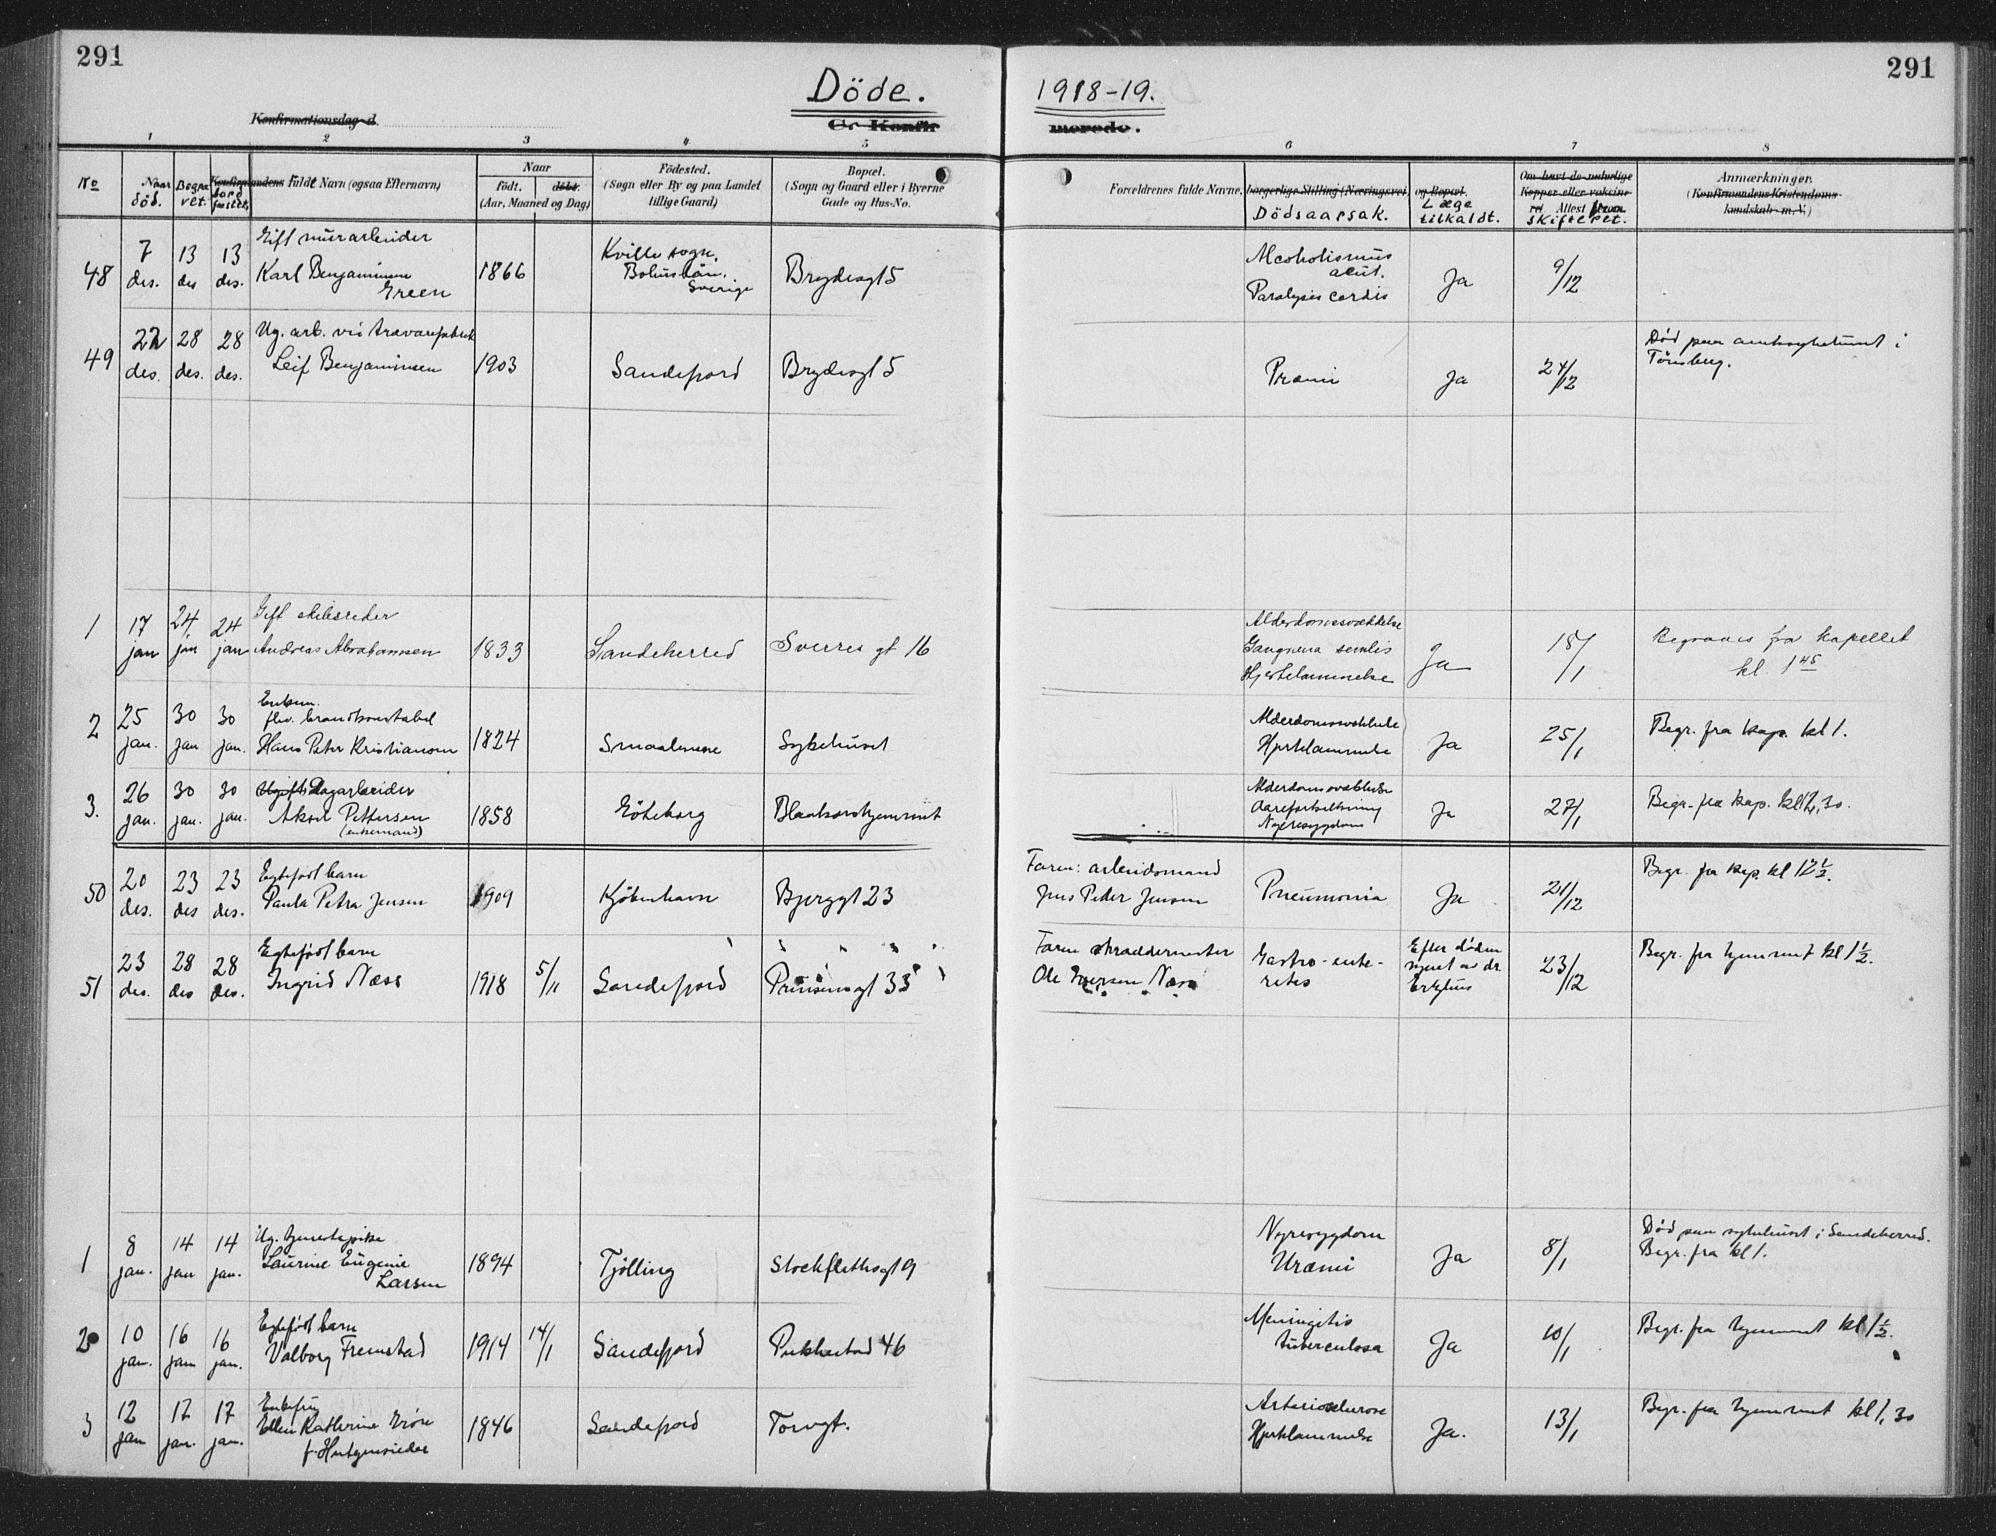 291
291
Döde.
1918-19.
Konfirmationsdag d.
Gr Konfir
merede.
1 2 3 4 5 6 7 8
No
Naar död.
Begra vet.
Jord fæstet,
Konfirmandens fulde Navn (ogsaa Efternavn)
Naar
født. døbt.
(Aar, Maaned og Dag)
Fødested.
(Sogn eller By og paa Landet
tillige Gaard)
Bopæl.
(Sogn og Gaard eller i Byerne
Gade og Hus-No.
Forældrenes fulde Navne, borgerlige Stilling (Næringsvei) og Bopæl.
Dödsaarsak.
Læge
tilkaldt.
Om havt de naturlige
Kopper eller vaksine-
ret Attest
Skifteret.
Anmærkninger.
(Konfirmandens Kristendoms-
kundskab m. V.)
48
7 des.
13 des
13 des.
Gift murarbeider
Karl Benjaminsen
Green
1866
Kville sogn,
Bohuslän,
Sverige
Brydesgt 5
Alcoholismus
acut.
Paralysis cordis
Ja
9/12
49
22 des.
28 des.
28 des.
Ug. arb. ved trævarefabrik
Leif Benjaminsen
1903
Sandefjord
Brydesgt 5
Præmi
Ja
24/12
Død paa amtssykehuset i
Tönsberg.
1
17 jan
24 jan
24 jan
Gift skibsreder
Andreas Abrahamsen
1833
Sandeherred
Sverres gt 16
Alderdomssvækkelse
Gangræna senilis
Hjertelammelse
Ja
18/1
Begraves fra kapellet
kl. 1 45
2
25 jan.
30 jan
30 jan.
Enkem.
fhv. brandkonstabel
Hans Peter Kristiansen
1824
Smaalenene
Sykehuset
Alderdomssvækkelse
Hjertelammelse
Ja
25/1
Begr. fra kap. kl 1.
3.
26 jan.
30 jan.
30 jan.
Ugift Dagarbeider
Aksel Pettersen
(enkemand)
1858
Göteborg
Blaakorshjemmet
Alderdomssvækkelse
Aareforkalkning
Nyresygdom
Ja
27/1
Begr. fra kap. kl 12,30.
50
20 des.
23 des
23 des.
Egtefødt barn
Paula Petra Jensen
1909
Kjöbenhavn
Bjerggt 23
Faren: arbeidsmand
Jens Peder Jensen
Pneumonia
Ja
21/12
Begr. fra kap. kl 12 1/2.
51
23 des.
28 des
28 des.
Egtefødt barn
Ingrid Næss
1918
5/11
Sandefjord
Prinsensgt 33
Faren skræddermester
Ole Iversen Næss
Gastro-ente-
rites
Efter døden
synet av dr.
Erzius
23/12
Begr. fra hjemmet kl 1 1/2.
1
8 jan.
14 jan
14 jan.
Ug. tjenestepike
Laurine Eugenie
Larsen
1894
Tjölling
Stockflethsgt 9
Nyresygdom
Uræmi
Ja
8/1
Død paa sykehuset i Sandeherred.
Begr. fra kl 1.
2
10 jan.
16 jan
16 jan.
Egtefødt barn
Valborg Fremstad
1914
14/1
Sandefjord
Pukkestad 46
Meningitis
tuberculosa
Ja
10/1
Begr. fra hjemmet kl 1 1/2.
3
12 jan
17 jan.
17 jan.
Enkefru
Ellen Katherine
1846
Sandefjord
Torvgt.
Arteriosclerose
Hjertelammelse
Ja.
13/1
Begr. fra hjemmet kl 1,30